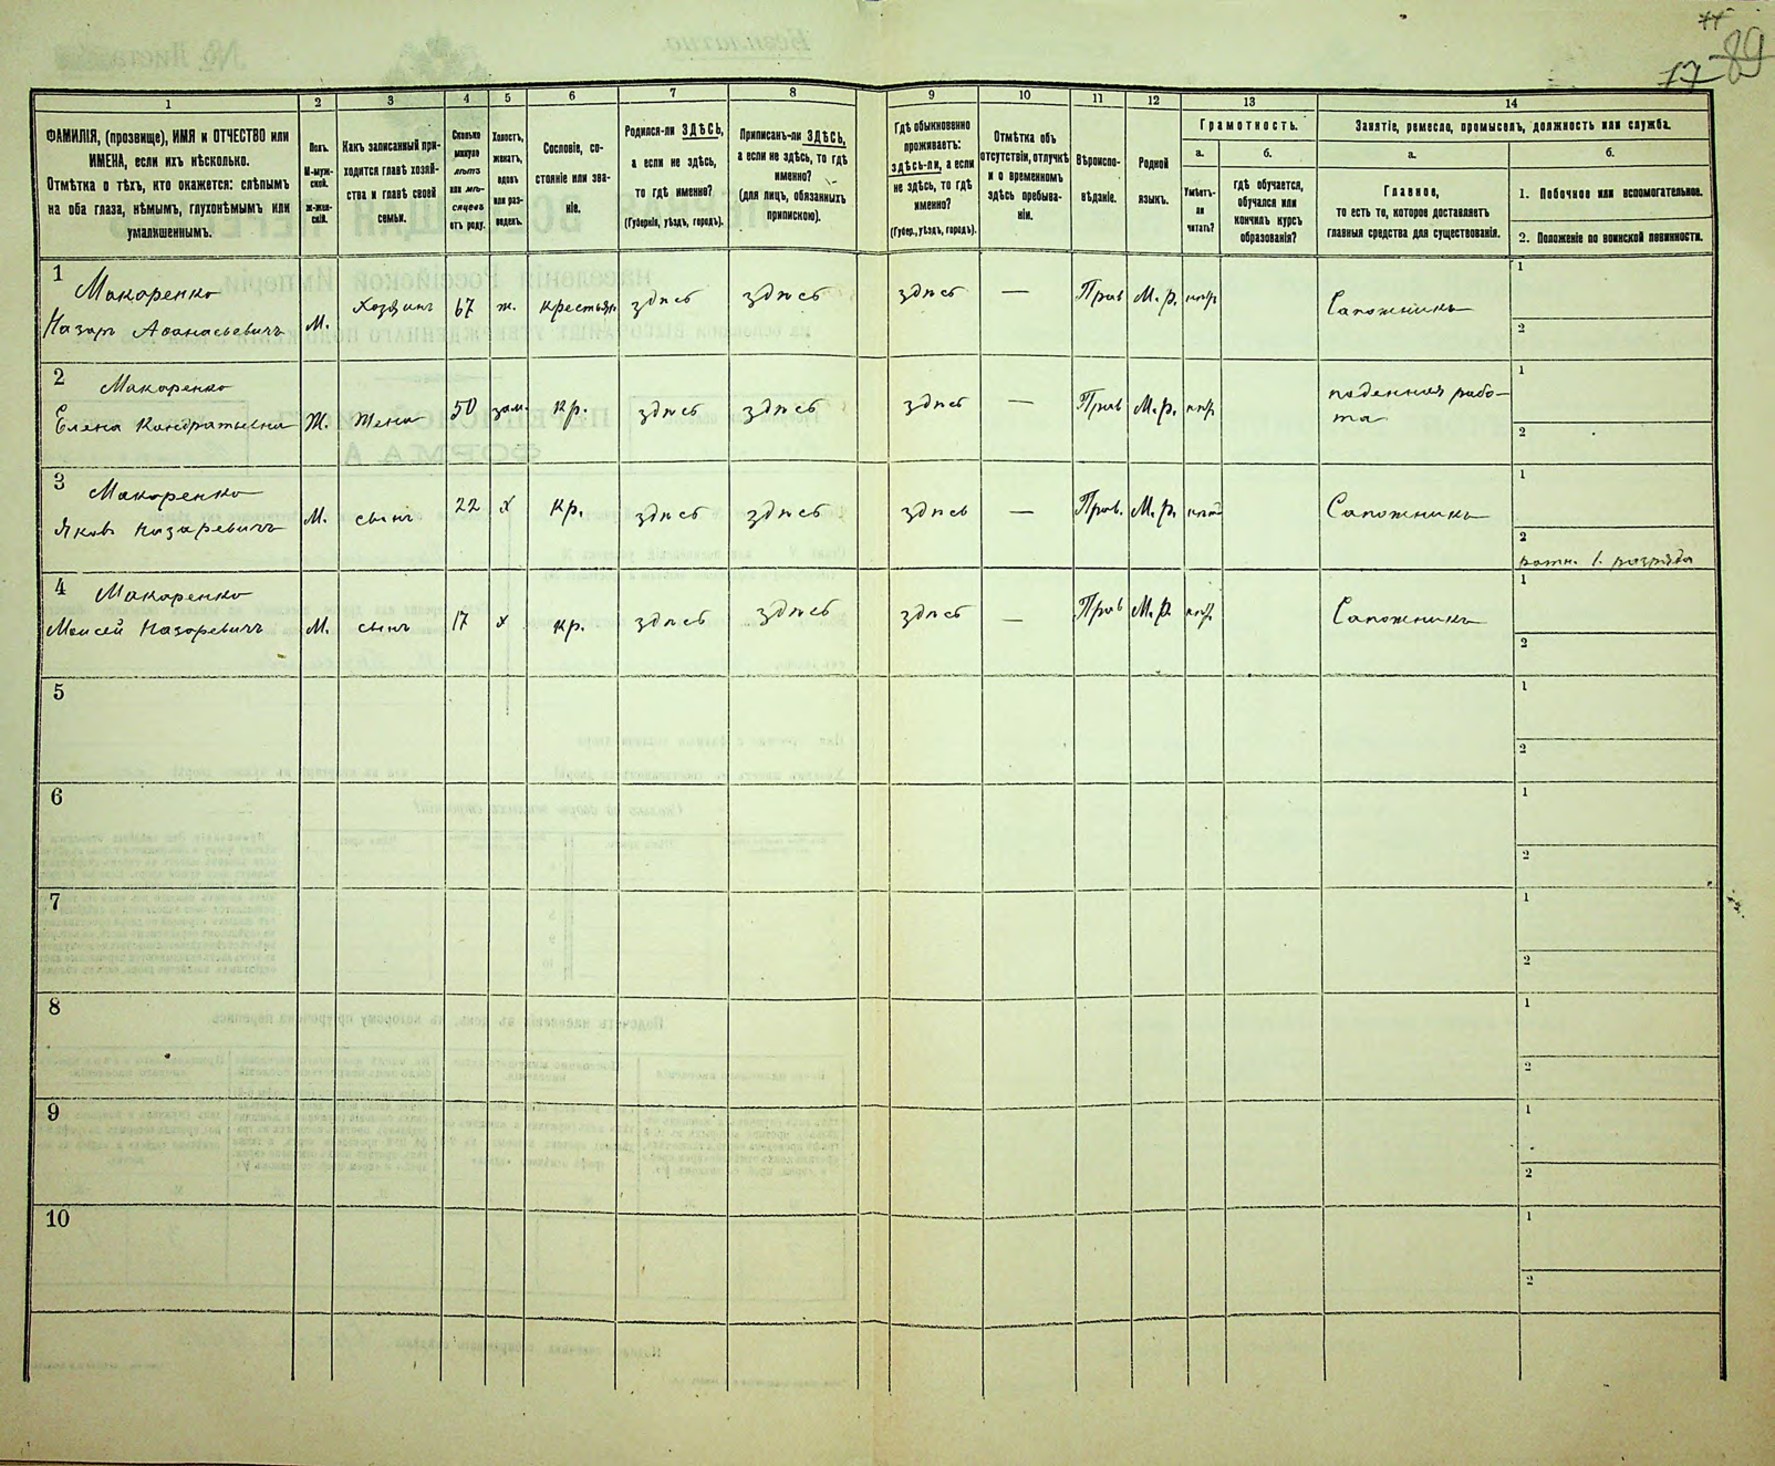 17 89
1 2 3 4 5 6 7 8 9 10 11 12 13 14
ФАМИЛІЯ, (прозвище), ИМЯ и ОТЧЕСТВО или
ИМЕНА, если ихъ нѣсколько.
Отмѣтка о тѣхъ, кто окажется: слѣпымъ
на оба глаза, нѣмымъ, глухонѣмымъ или
умалишеннымъ.
Полъ.
М-муж-
ской.
ж-жен-
скій.
Какъ записанный при-
ходится главѣ хозяй-
ства и главѣ своей
семьи.
Сколько
минуло
лѣтъ
или мѣ-
сяцевъ
отъ роду.
Холостъ,
женатъ,
вдовъ
или раз-
веденъ.
Сословіе, со-
стояніе или зва-
ніе.
Родился-ли ЗДѢСЬ,
а если не здѣсь,
то гдѣ именно?
(Губернія, уѣздъ, городъ).
Приписанъ-ли ЗДѢСЬ,
а если не здѣсь, то гдѣ
именно?
(для лицъ, обязанныхъ
припискою).
Гдѣ обыкновенно
проживаетъ:
здѣсь-ли, а если
не здѣсь, то гдѣ
именно?
(Губер., уѣздъ, городъ).
Отмѣтка объ
отсутствіи, отлучкѣ
и о временномъ
здѣсь пребыва-
ніи.
Вѣроиспо-
вѣданіе.
Родной
языкъ.
Грамотность.
а. б.
Умѣетъ-
ли
читать?
гдѣ обучается,
обучался или
кончилъ курсъ
образованія?
Занятіе, ремесло, промыселъ, должность или служба.
а. б.
Главное,
то есть то, которое доставляетъ
главныя средства для существованія.
1. Побочное или вспомогательное.
2. Положеніе по воинской повинности.
1 Макаренко
Назаръ Аѳанасьевичъ М. Хозяинъ 67 ж. крестьян здѣсь здѣсь здѣсь — Прав М. р. Сапожникъ 1
2
2 Макаренко
Елена Кондратьевна Ж. Жена 50 зам. кр. здѣсь здѣсь здѣсь — Прав М. р. поденная рабо-
та 1
2
3 Макаренко
Яковъ Назаревичъ М. сынъ 22 х кр. здѣсь здѣсь здѣсь — Прав. М. р. Сапожникъ 1
2
ратн. 1. разряда
4 Макаренко
Моисей Назаревичъ М. сынъ 17 х кр. здѣсь здѣсь здѣсь — Прав М. р. Сапожникъ 1
2
5 1
2
6 1
2
7 1
2
8 1
2
9 1
2
10 1
2